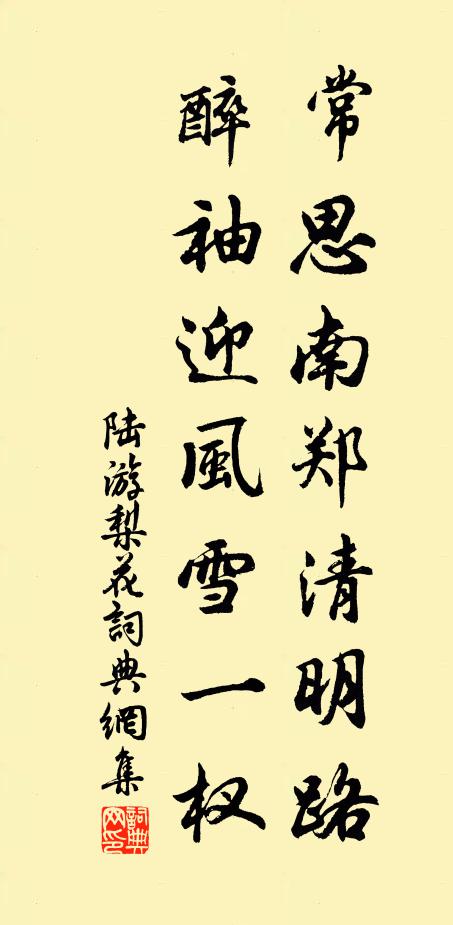 常思南郑清明路
醉袖迎風雪一杈
陆游梨花詞典網集
詞典網印